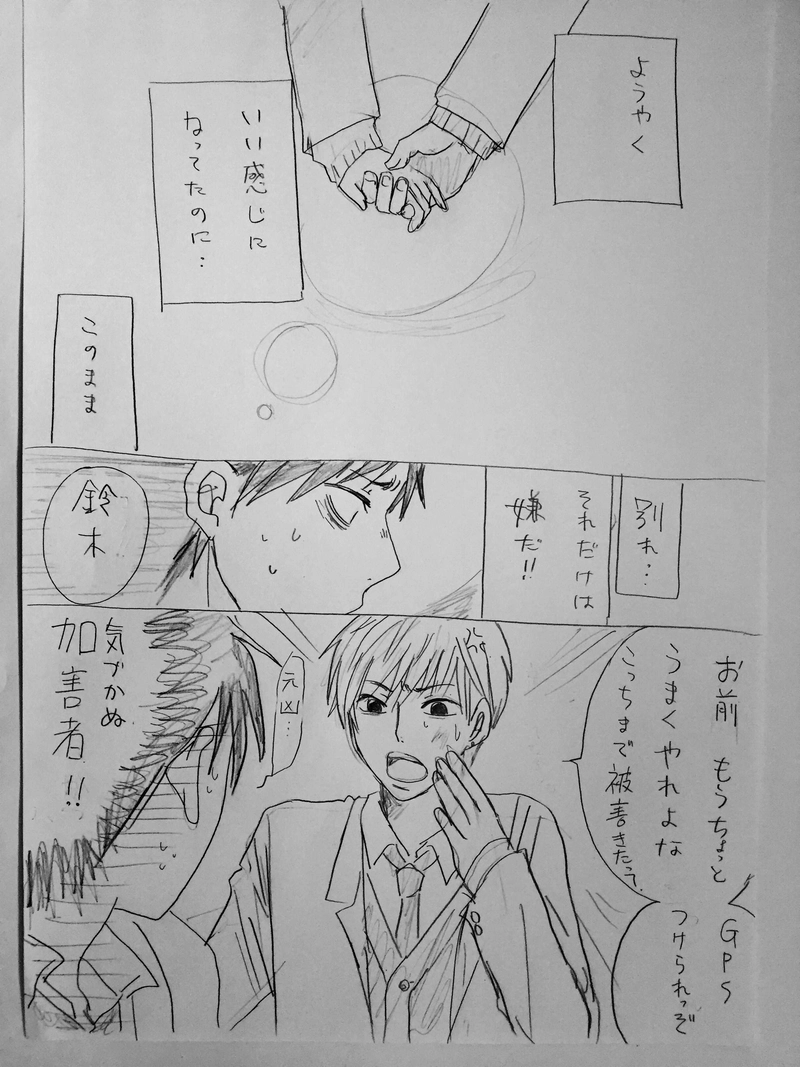 ようやく
いい感じに
なってたのに…
このまま
別れ…
それだけは
嫌だ!!
鈴木
お前 もうちょっと
うまくやれよな
こっちまで被害きたって
GPS
つけられっぞ
元凶…
気づかぬ
加害者!!